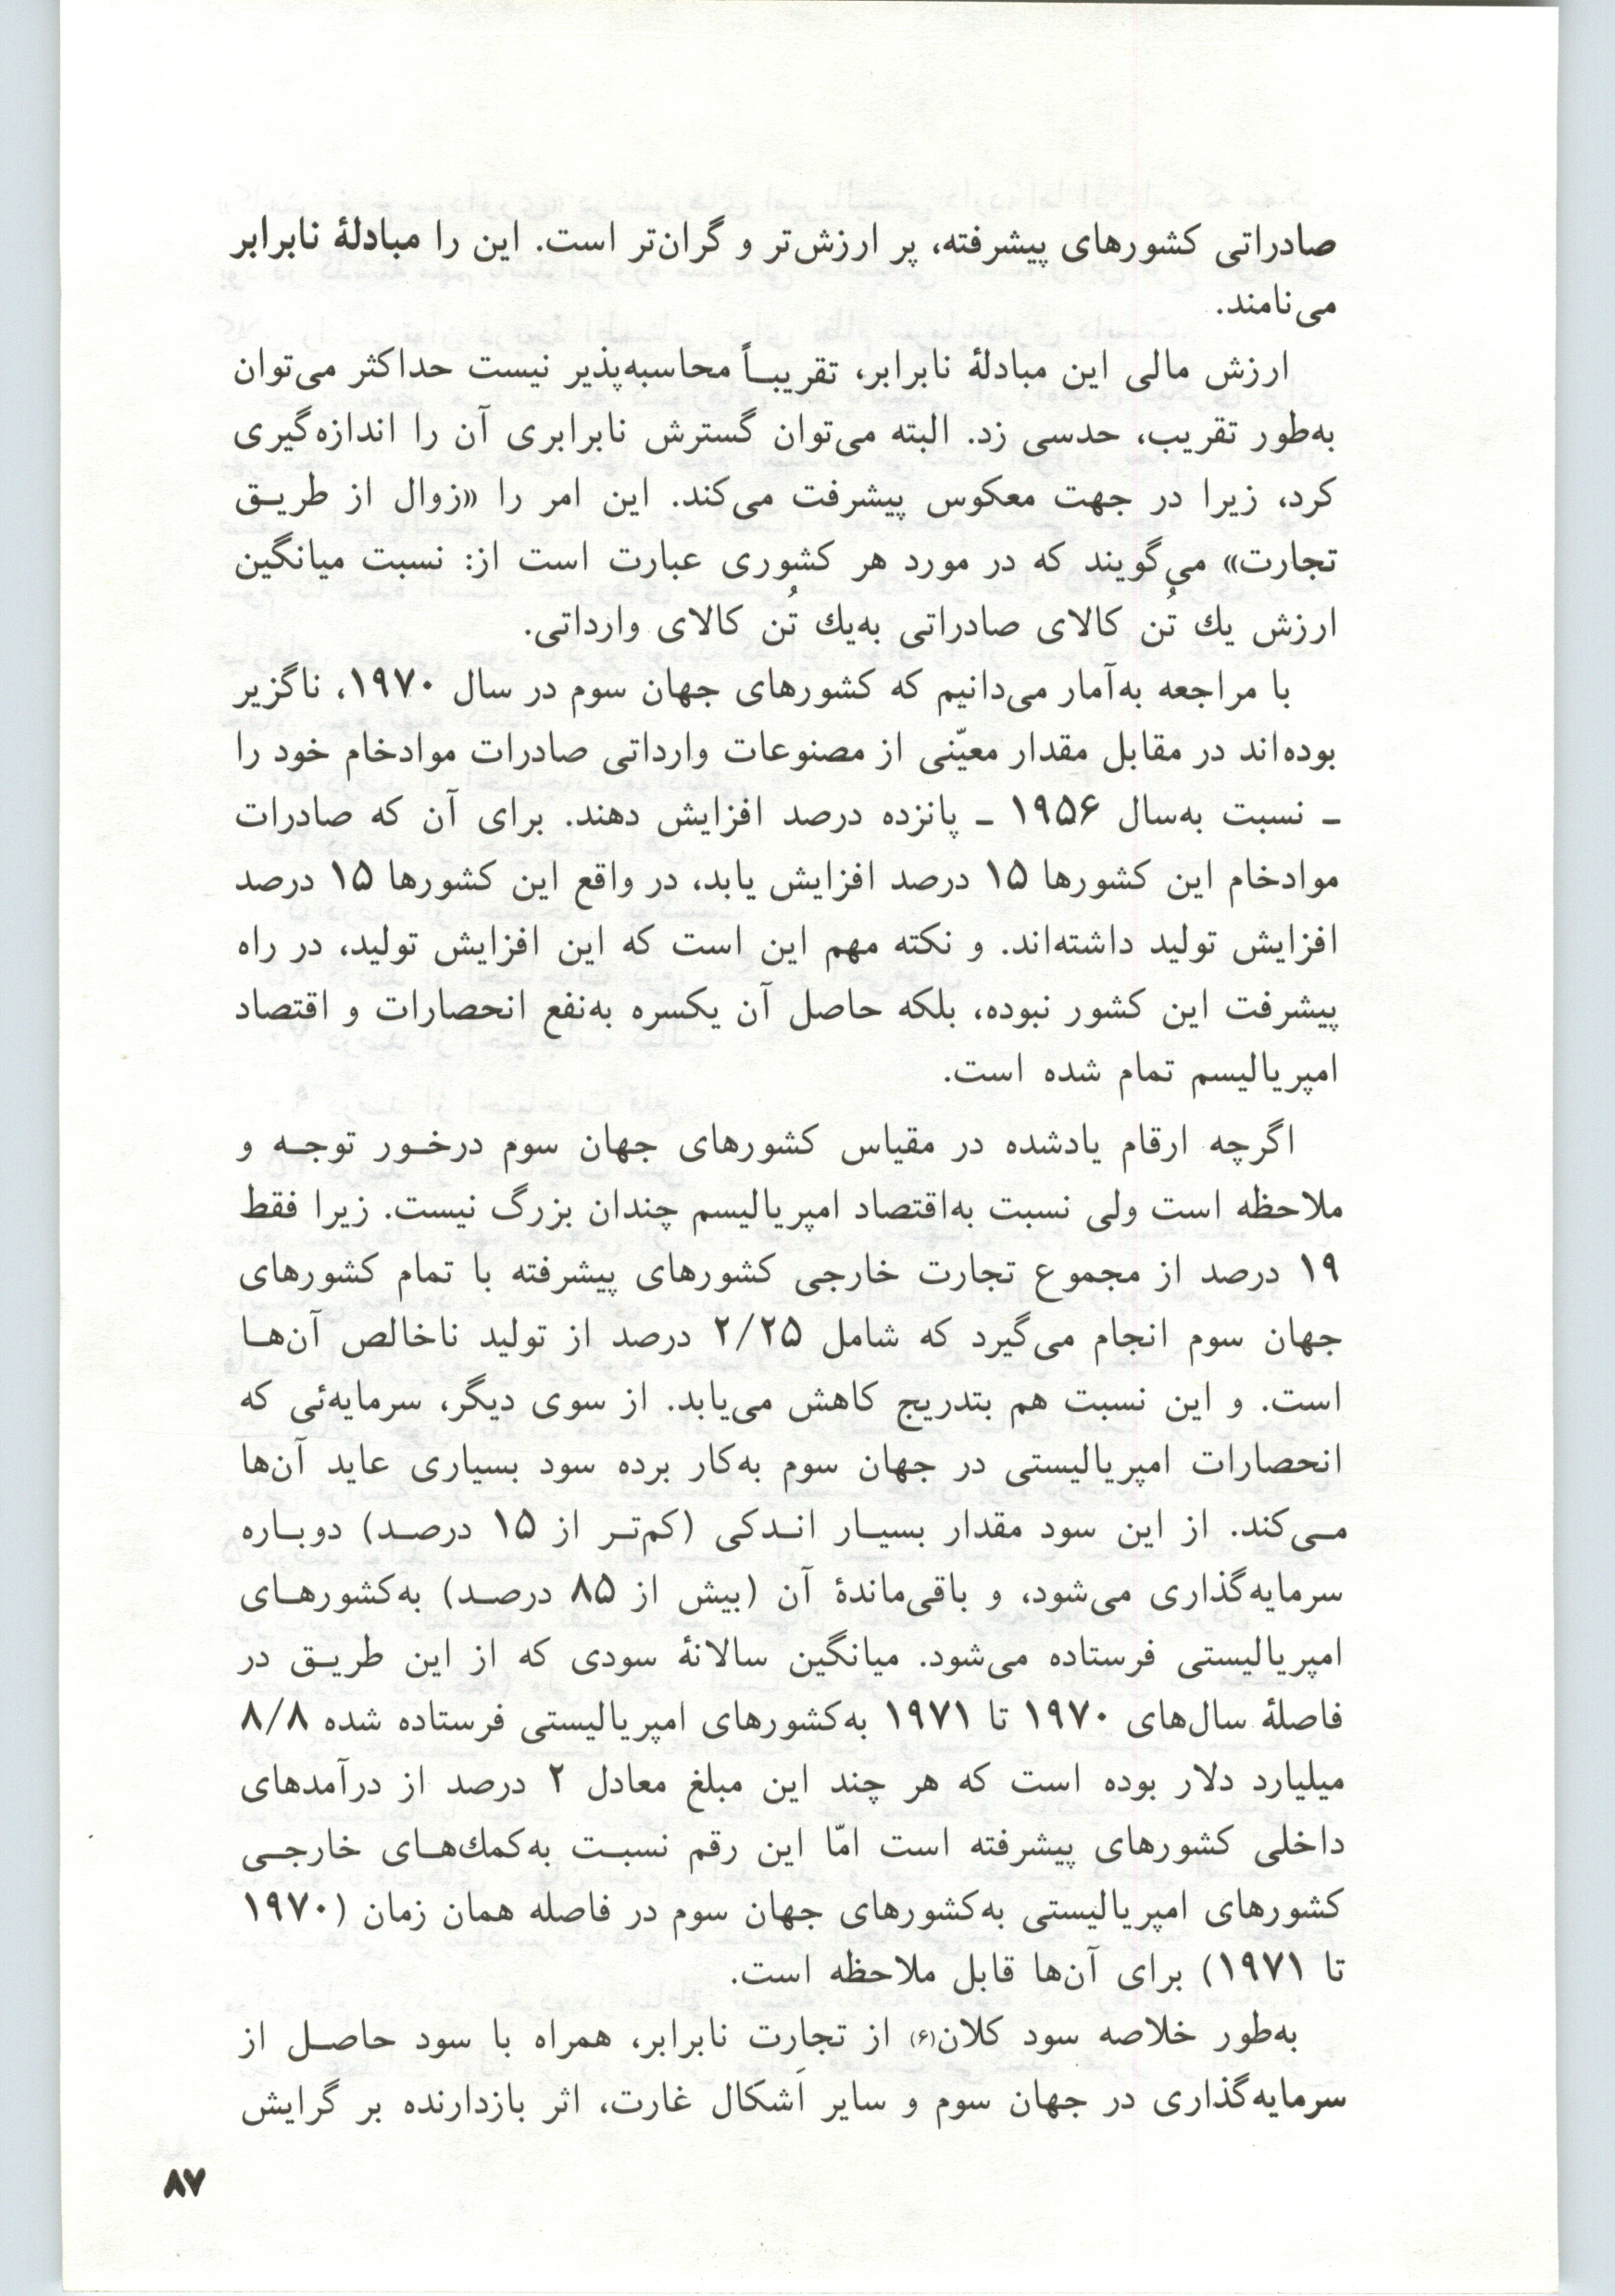 صادراتی کشورهای پیشرفته، پر ارزش‌تر و گران‌تر است. این را مبادلهٔ نابرابر
می‌نامند.
ارزش مالی این مبادلهٔ نابرابر، تقریبـاً محاسبه‌پذیر نیست حداکثر می‌توان
به‌طور تقریب، حدسی زد. البته می‌توان گسترش نابرابری آن را اندازه‌گیری
کرد، زیرا در جهت معکوس پیشرفت می‌کند. این امر را «زوال از طریـق
تجارت» می‌گویند که در مورد هر کشوری عبارت است از: نسبت میانگین
ارزش یك تُن کالای صادراتی به‌یك تُن کالای وارداتی.
با مراجعه به‌آمار می‌دانیم که کشورهای جهان سوم در سال ۱۹۷۰، ناگزیر
بوده‌اند در مقابل مقدار معیّنی از مصنوعات وارداتی صادرات موادخام خود را
ـ نسبت به‌سال ۱۹۵۶ ـ پانزده درصد افزایش دهند. برای آن که صادرات
موادخام این کشورها ۱۵ درصد افزایش یابد، در واقع این کشورها ۱۵ درصد
افزایش تولید داشته‌اند. و نکته مهم این است که این افزایش تولید، در راه
پیشرفت این کشور نبوده، بلکه حاصل آن یکسره به‌نفع انحصارات و اقتصاد
امپریالیسم تمام شده است.
اگرچه ارقام یادشده در مقیاس کشورهای جهان سوم درخـور توجـه و
ملاحظه است ولی نسبت به‌اقتصاد امپریالیسم چندان بزرگ نیست. زیرا فقط
۱۹ درصد از مجموع تجارت خارجی کشورهای پیشرفته با تمام کشورهای
جهان سوم انجام می‌گیرد که شامل ۲/۲۵ درصد از تولید ناخالص آن‌هـا
است. و این نسبت هم بتدریج کاهش می‌یابد. از سوی دیگر، سرمایه‌ئی که
انحصارات امپریالیستی در جهان سوم به‌کار برده سود بسیاری عاید آن‌ها
مـی‌کند. از این سود مقدار بسیـار انـدکی (کم‌تـر از ۱۵ درصـد) دوبـاره
سرمایه‌گذاری می‌شود، و باقی‌ماندهٔ آن (بیش از ۸۵ درصـد) به‌کشورهـای
امپریالیستی فرستاده می‌شود. میانگین سالانهٔ سودی که از این طریـق در
فاصلهٔ سال‌های ۱۹۷۰ تا ۱۹۷۱ به‌کشورهای امپریالیستی فرستاده شده ۸/۸
میلیارد دلار بوده است که هر چند این مبلغ معادل ۲ درصد از درآمدهای
داخلی کشورهای پیشرفته است امّا این رقم نسبـت به‌کمك‌هـای خارجـی
کشورهای امپریالیستی به‌کشورهای جهان سوم در فاصله همان زمان (۱۹۷۰
تا ۱۹۷۱) برای آن‌ها قابل ملاحظه است.
به‌طور خلاصه سود کلان(۶) از تجارت نابرابر، همراه با سود حاصـل از
سرمایه‌گذاری در جهان سوم و سایر اَشکال غارت، اثر بازدارنده بر گرایش
۸۷